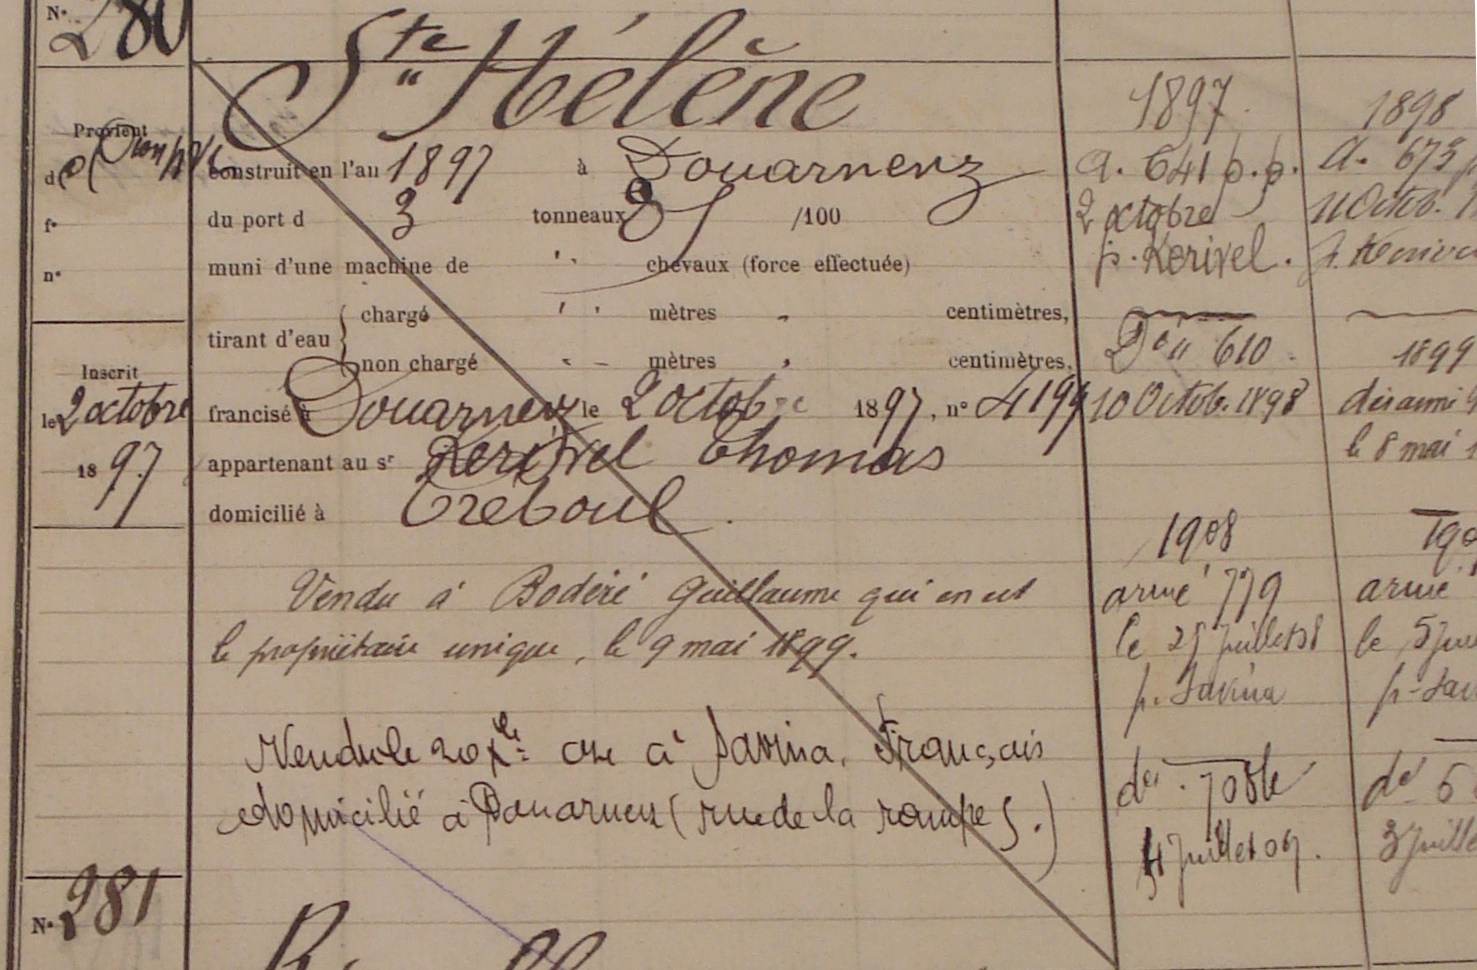 N° 280
Ste Hélène
Provient
d
f°
n°
construit en l'an 1897 à Douarnenz
du port d 3 tonneaux 85 /100
muni d'une machine de " chevaux (force effectuée)
tirant d'eau { chargé " mètres " centimètres,
non chargé " mètres " centimètres.
Inscrit
le 2 octobre
1897
francisé à Douarnenz le 2 octobre 1897, n° 4199
appartenant au sr Kerivel Thomas
domicilié à Treboul.
Vendu à Bodéré Guillaume qui en est
le propriétaire unique, le 9 mai 1899.
Vendu le 20 Xre à Savina, François
domicilié à Douarnenz (rue de la rampe 5.)
1897
a. 641 p.p.
2 octobre
p. Kerivel.
Dé " 610
10 Octob. 1898
1908
armé 779
le 25 juillet 08
p. Savina
dé. 708 le
4 juillet 09.
1898
a. 673
11 Octob.
1899
désarmé
le 8 mai
armé
le 5
dé 6
3 juille
N° 281